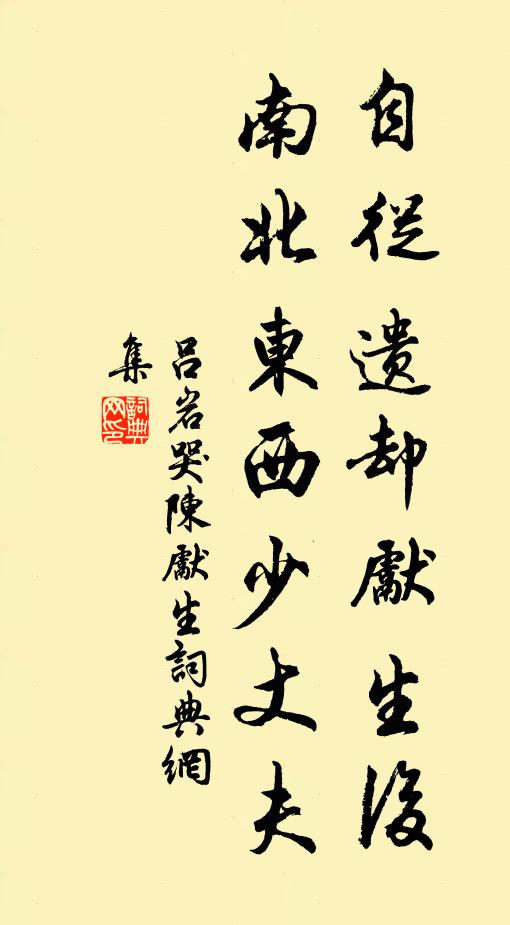 自從遺却獻生後
南北東西少丈夫
呂岩哭陳獻生詞典網
集
詞典網印